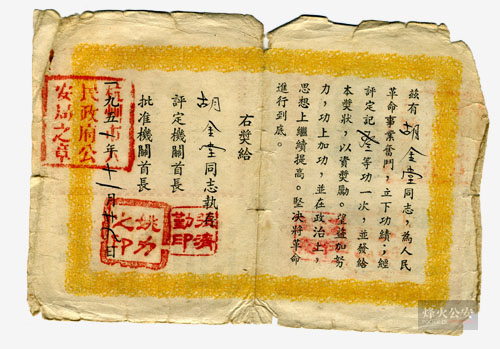 茲有胡金堂同志，為人民
革命事業奮鬥，立下功績；經
評定記叁等功一次，並發給
本獎狀，以資獎勵。望益加努
力，功上加功，並在政治上，
思想上繼續提高。堅决將革命
進行到底。
右獎給
胡金堂同志執
評定機關首長
勤印
批准機關首長
姚力之印
一九五一年十一月日
民政府公
安局之章
烽火公安